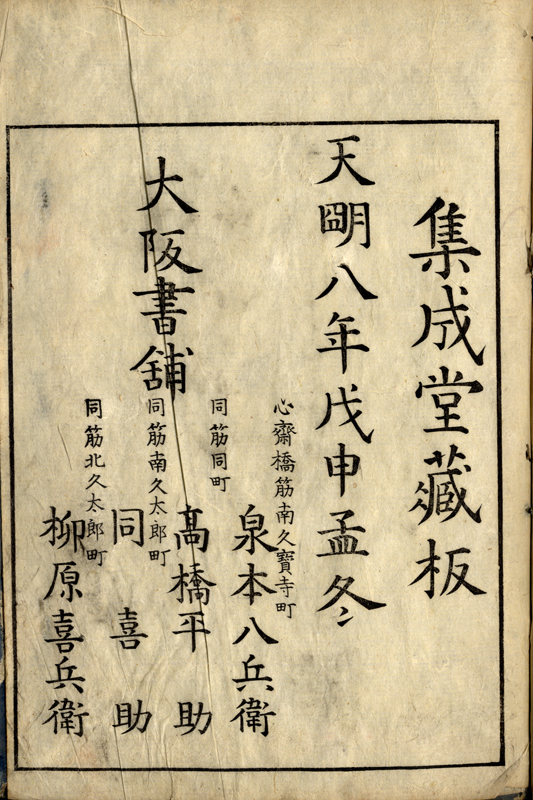 集成堂藏板
天明八年戊申孟冬
大阪書舗
心齋橋筋南久寶寺町
泉本八兵衛
同筋同町
髙橋平助
同筋南久太郎町
同喜助
同筋北久太郎町
柳原喜兵衛